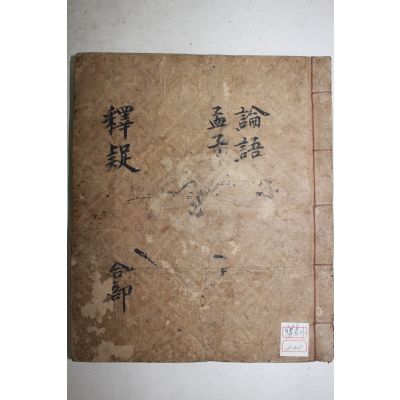 論語
孟子
釋疑
合部